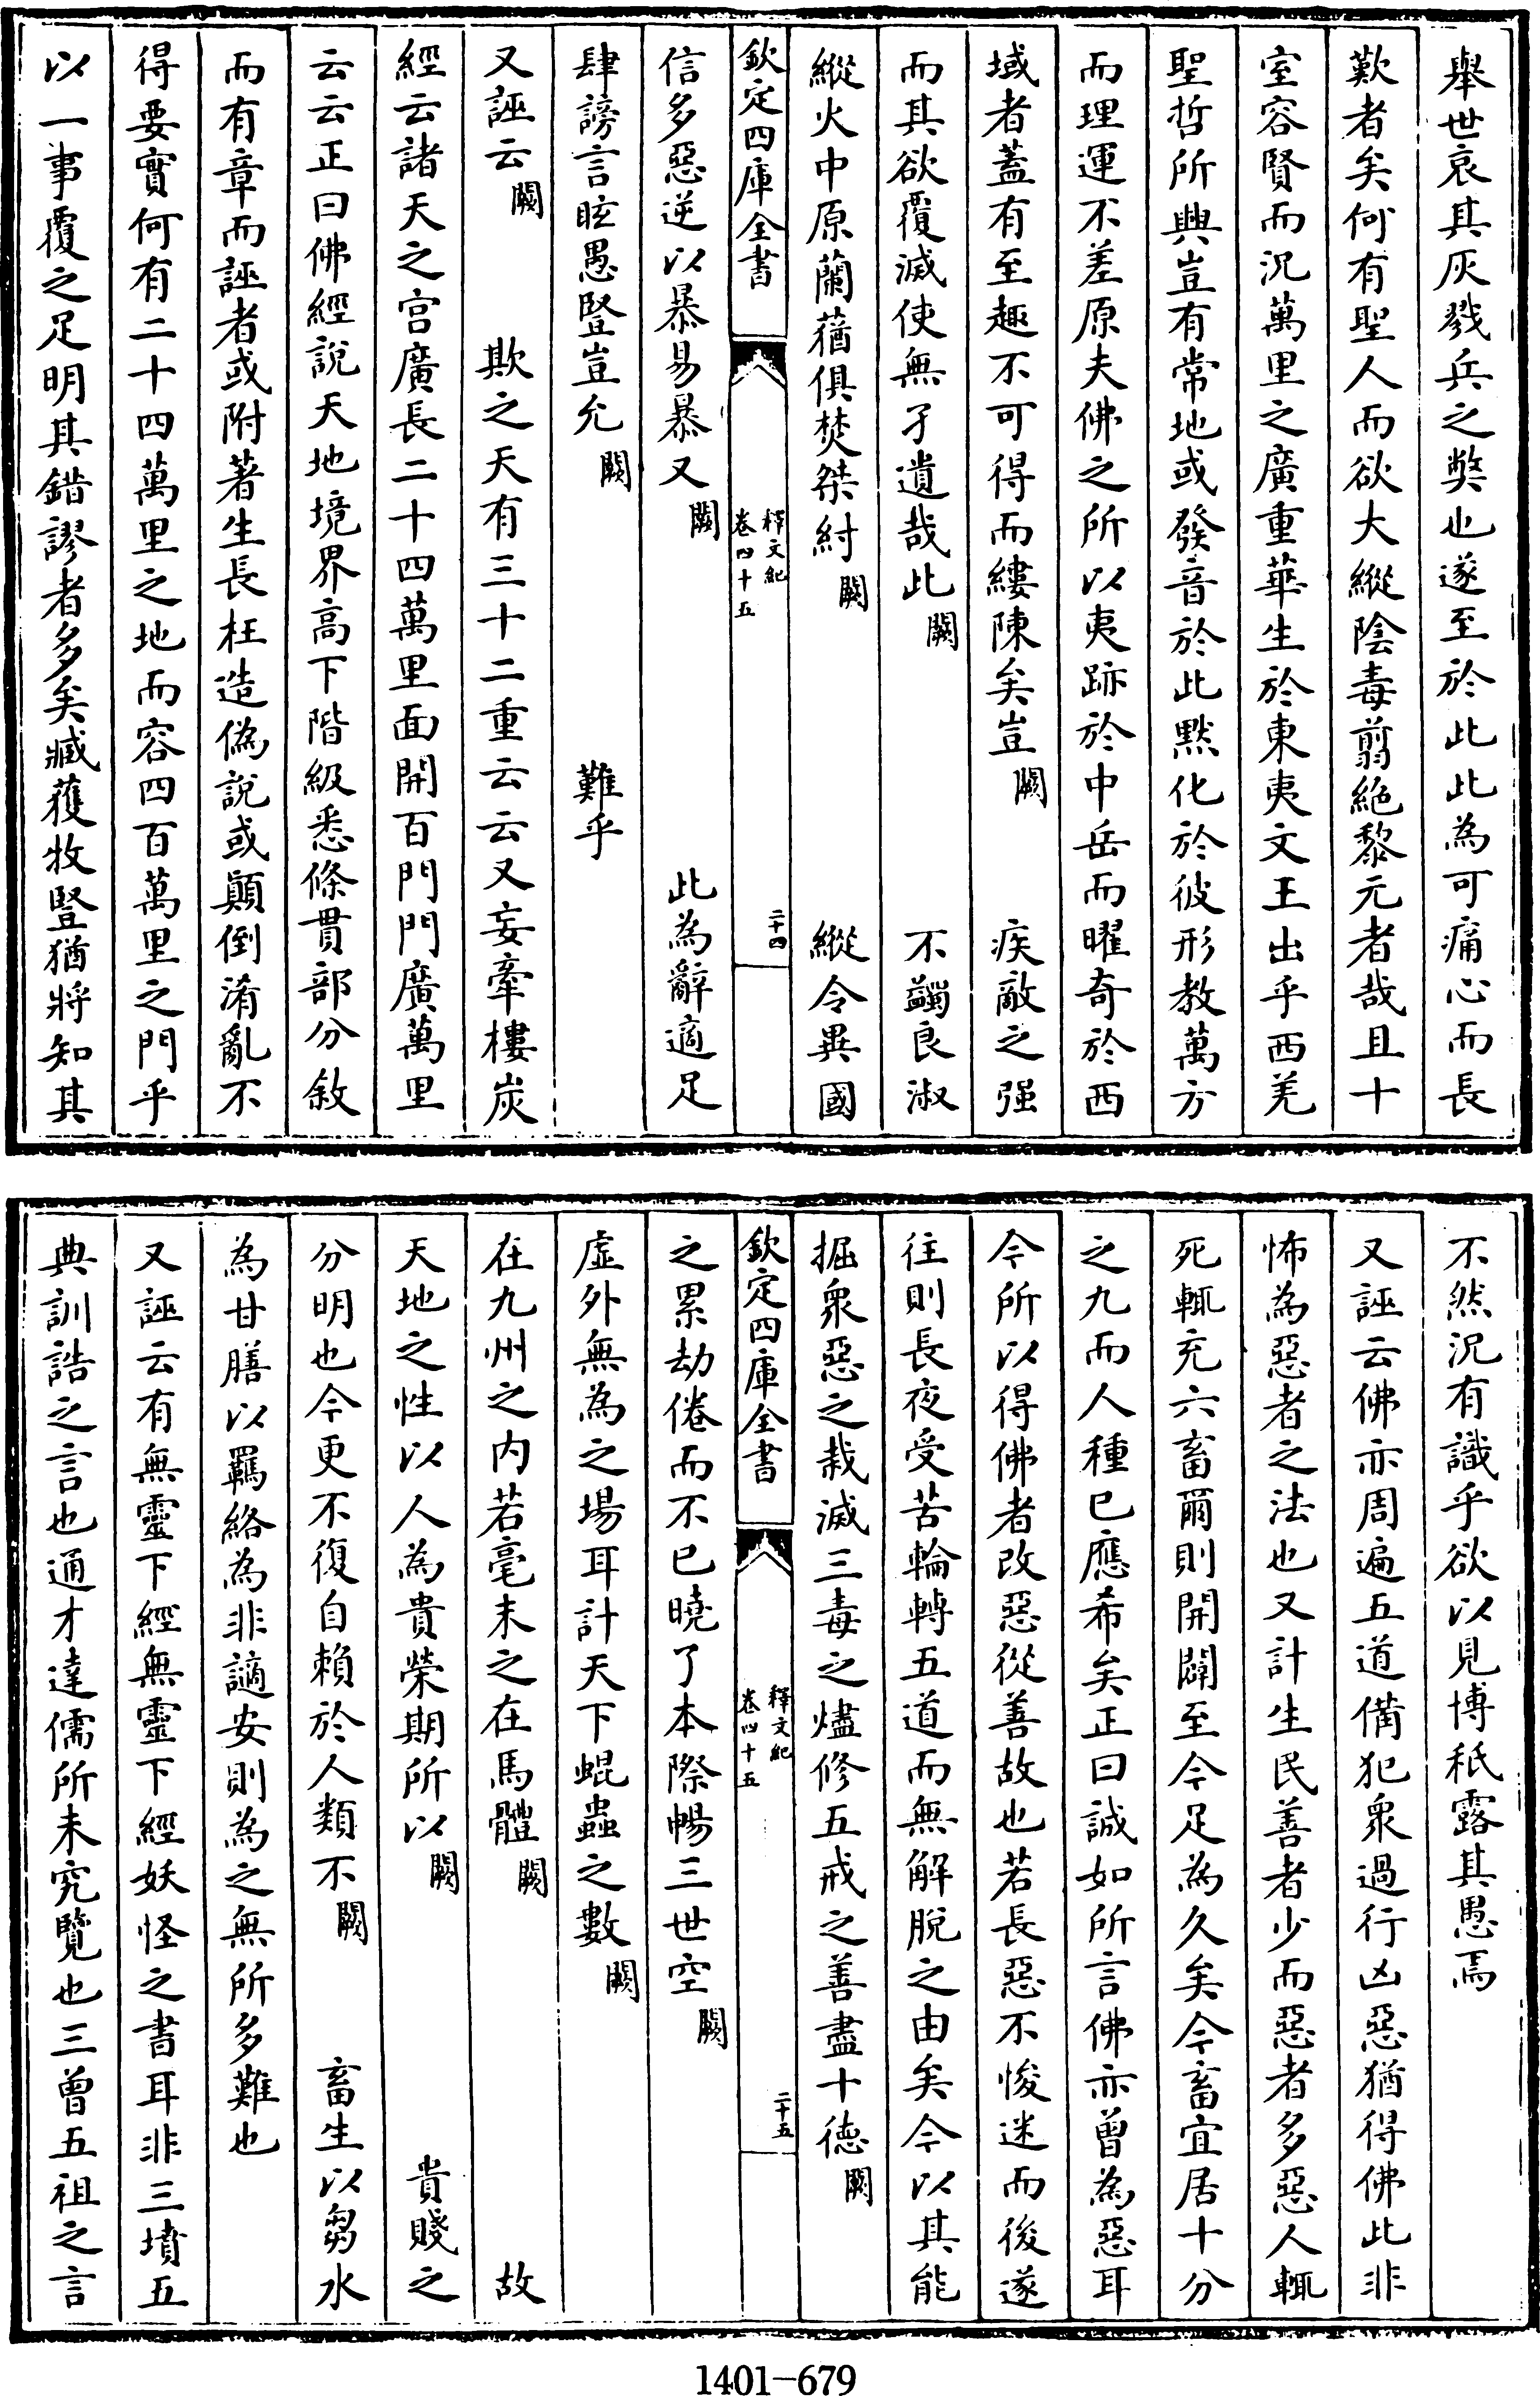 舉世哀其灰戮兵之弊也遂至於此此為可痛心而長
歎者矣何有聖人而欲大縱陰毒翦絶黎元者哉且十
室容賢而況萬里之廣重華生於東夷文王出乎西羌
聖哲所興豈有常地或發音於此默化於彼形教萬方
而理運不差原夫佛之所以夷跡於中岳而曜奇於西
域者蓋有至趣不可得而縷陳矣豈闕 疾敵之强
而其欲覆滅使無孑遺哉此闕 不蠲良淑
縱火中原蘭蕕俱焚桀紂闕 縱令異國
欽定四庫全書 釋文紀 卷四十五 二十四
信多惡逆以暴易暴又闕 此為辭適足
肆謗言眩愚豎豈允闕 難乎
又誣云闕 欺之天有三十二重云云又妄牽樓炭
經云諸天之宫廣長二十四萬里面開百門門廣萬里
云云正曰佛經說天地境界高下階級悉條貫部分敘
而有章而誣者或附著生長枉造偽說或顛倒淆亂不
得要實何有二十四萬里之地而容四百萬里之門乎
以一事覆之足明其錯謬者多矣臧獲牧豎猶將知其
不然況有識乎欲以見博秖露其愚焉
又誣云佛亦周遍五道備犯衆過行凶惡猶得佛此非
怖為惡者之法也又計生民善者少而惡者多惡人輒
死輒充六畜爾則開闢至今足為久矣今畜宜居十分
之九而人種已應希矣正曰誠如所言佛亦曾為惡耳
今所以得佛者改惡從善故也若長惡不悛迷而後遂
往則長夜受苦輪轉五道而無解脫之由矣今以其能
掘衆惡之栽滅三毒之燼修五戒之善盡十徳闕
欽定四庫全書 釋文紀 卷四十五 二十五
之累劫倦而不已曉了本際暢三世空闕
虛外無為之場耳計天下蜫蟲之數闕
在九州之内若毫末之在馬體闕 故
天地之性以人為貴榮期所以闕 貴賤之
分明也今更不復自賴於人類不闕 畜生以芻水
為甘膳以羈絡為非謫安則為之無所多難也
又誣云有無靈下經無靈下經妖怪之書耳非三墳五
典訓誥之言也通才達儒所未究覽也三曾五祖之言
1401-679